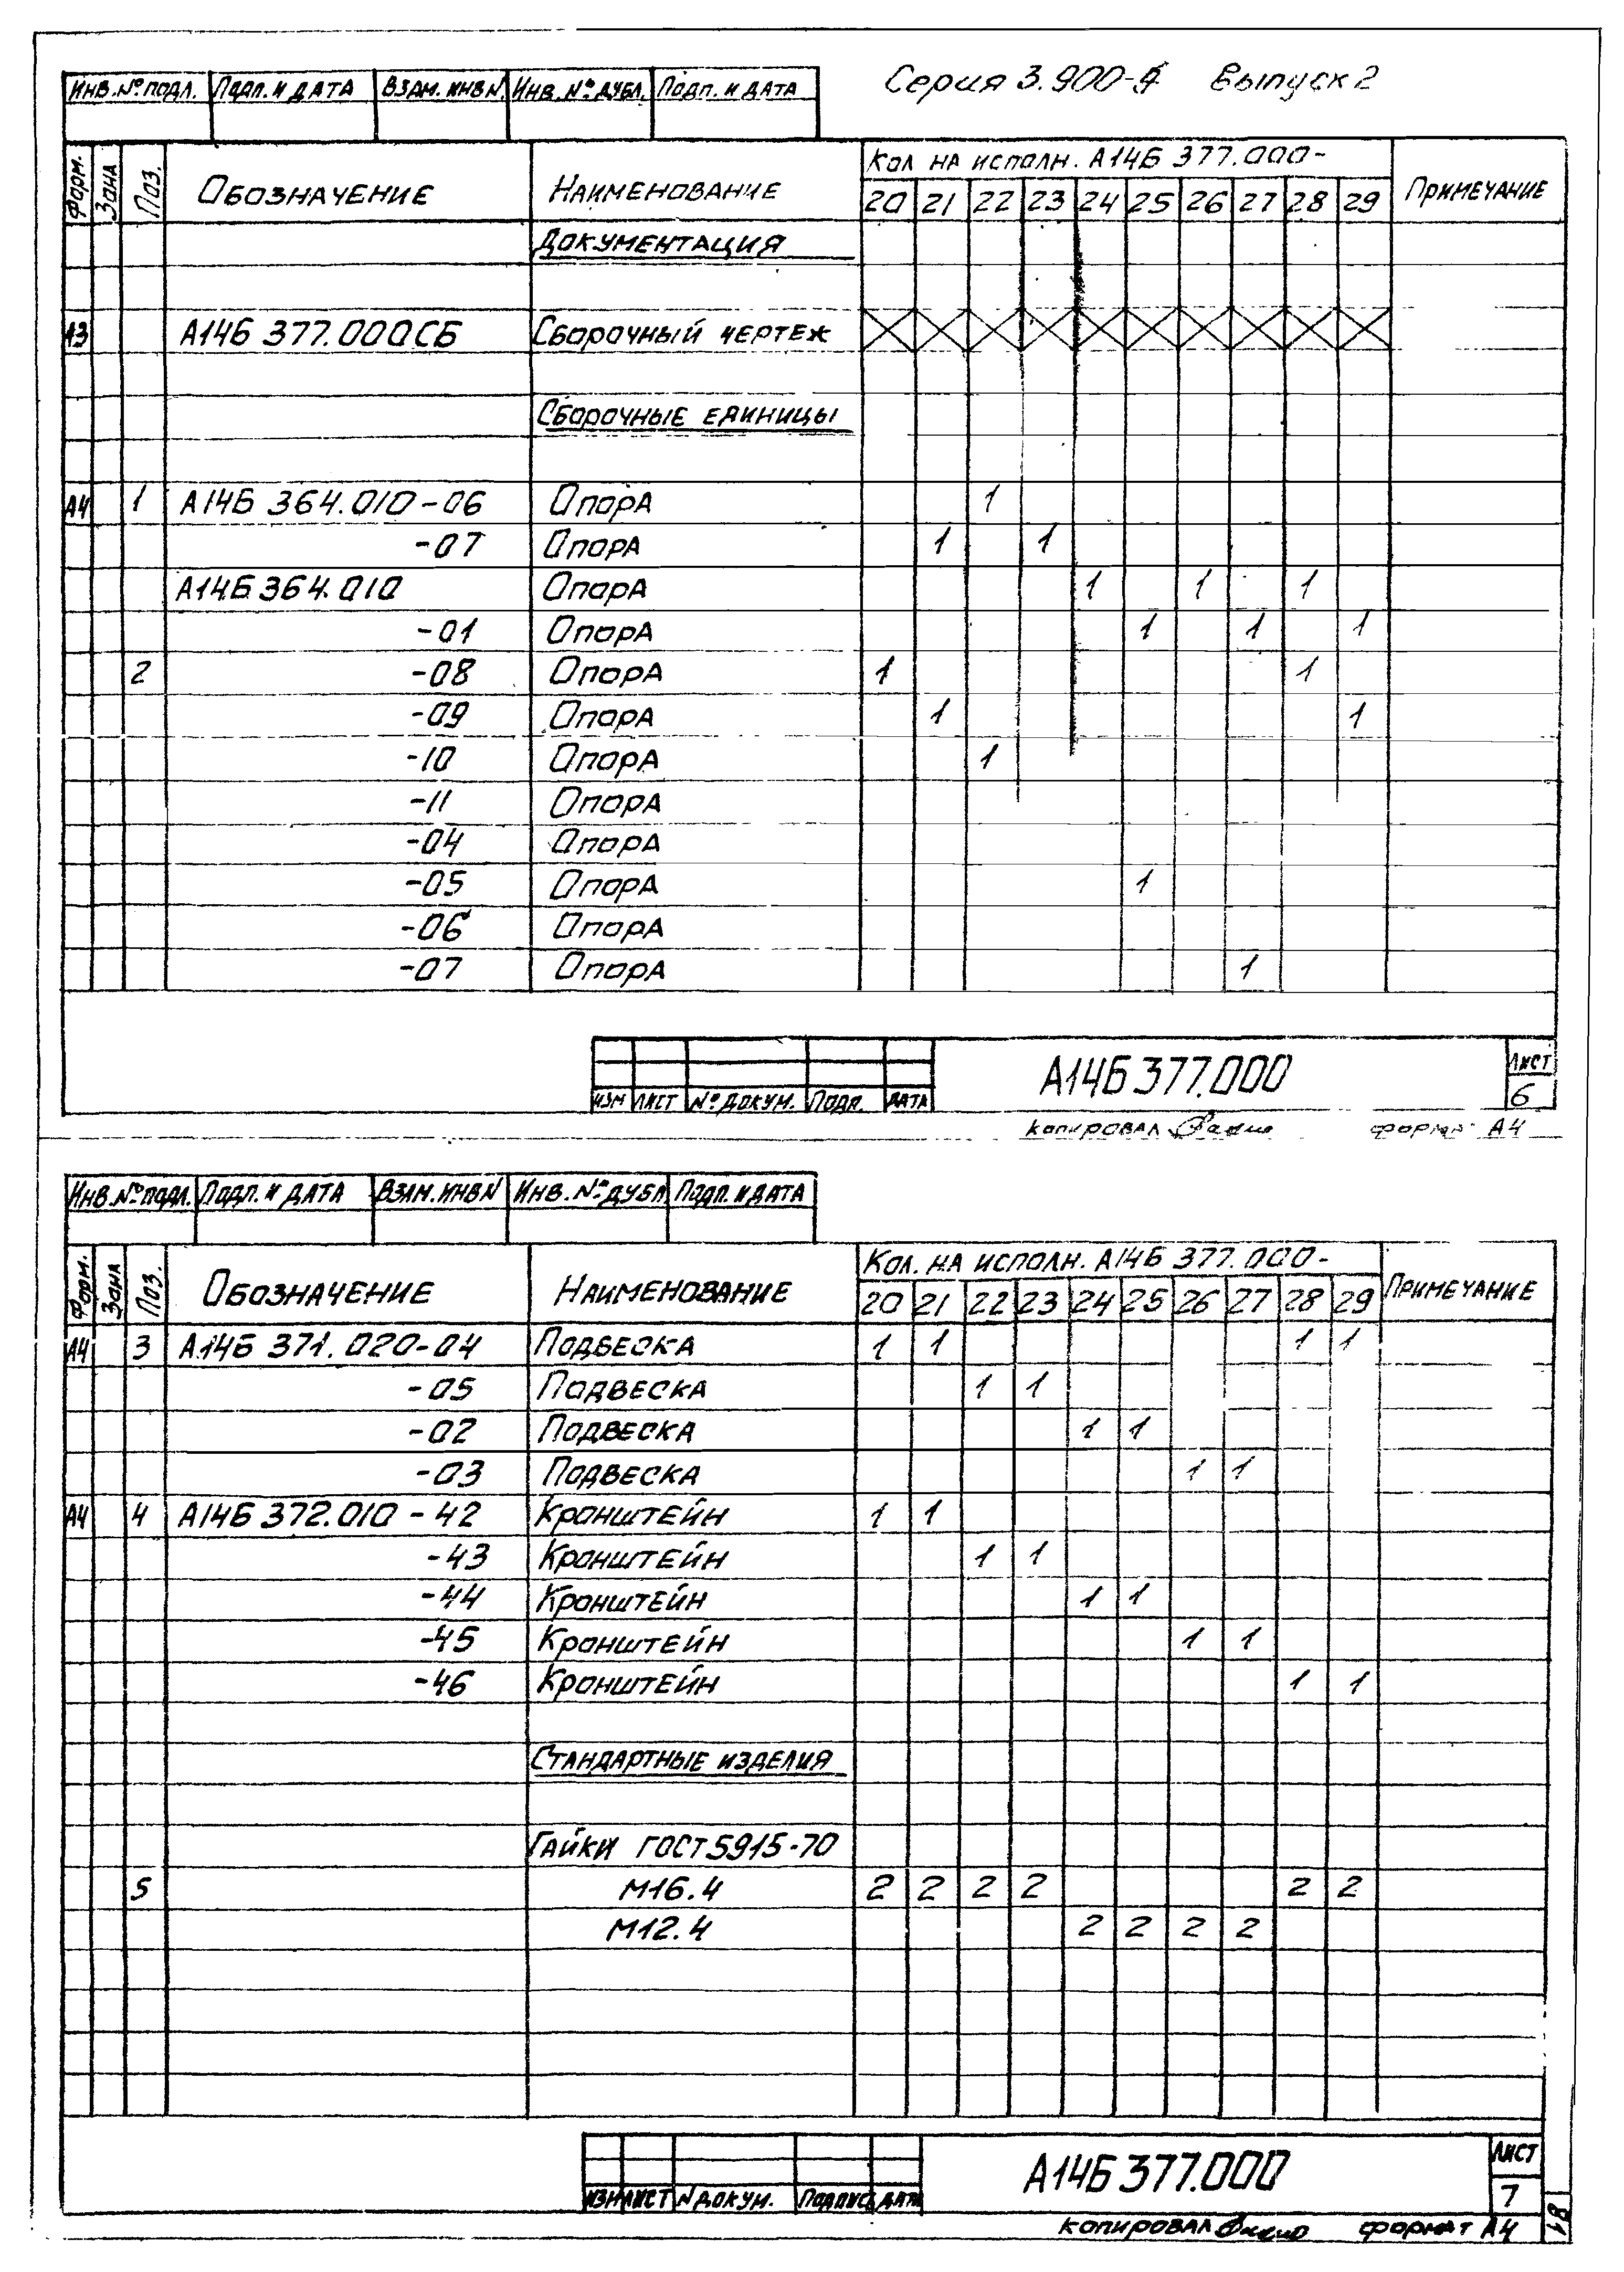 Серия 3.900-9 Выпуск 2
Инв.№ подл. Подп. и дата Взам. инв N. Инв. № дубл. Подп. и дата
Форм. Зона Поз. Обозначение Наименование Кол на исполн. А14Б 377.000- Примечание
20 21 22 23 24 25 26 27 28 29
Документация
А3 А14Б 377.000СБ Сборочный чертеж
Сборочные единицы
А4 1 А14Б 364.010-06 Опора 1
-07 Опора 1 1
А14Б 364.010 Опора 1 1 1
-01 Опора 1 1 1
2 -08 Опора 1 1
-09 Опора 1 1
-10 Опора 1
-11 Опора
-04 Опора
-05 Опора 1
-06 Опора
-07 Опора 1
Изм Лист № докум. Подп. Дата А14Б 377.000 Лист 6
копировал формат А4
Инв.№ подл. Подп. и дата Взам. инв N Инв. № дубл Подп. и дата
Форм. Зона Поз. Обозначение Наименование Кол. на исполн. А14Б 377.000- Примечание
20 21 22 23 24 25 26 27 28 29
А4 3 А14Б 371.020-04 Подвеска 1 1 1 1
-05 Подвеска 1 1
-02 Подвеска 1 1
-03 Подвеска 1 1
А4 4 А14Б 372.010-42 Кронштейн 1 1
-43 Кронштейн 1 1
-44 Кронштейн 1 1
-45 Кронштейн 1 1
-46 Кронштейн 1 1
Стандартные изделия
Гайки ГОСТ 5915-70
5 М16.4 2 2 2 2 2 2
М12.4 2 2 2 2
Изм Лист N докум. Подпись Дата А14Б 377.000 Лист 7
копировал формат А4